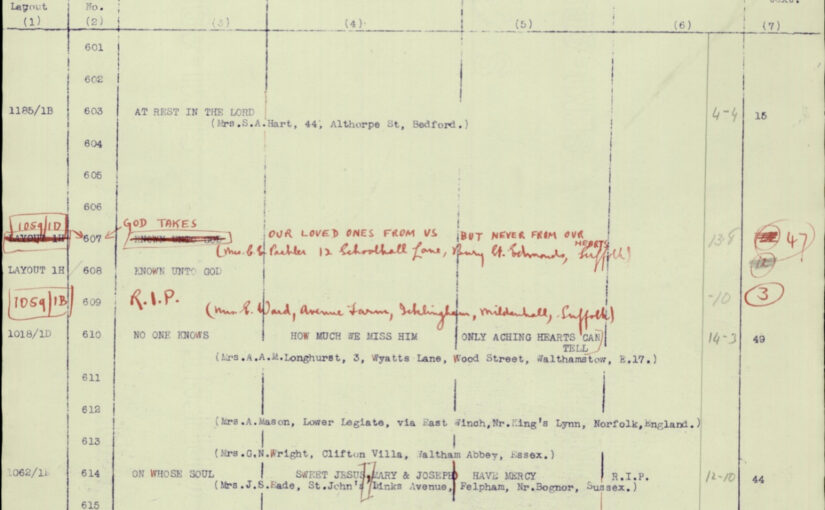 Layout No. Cont.
(1) (2) (3) (4) (5) (6) (7)
601
602
1185/1B 603 AT REST IN THE LORD 4-4 15
(Mrs.S.A.Hart, 44, Althorpe St, Bedford.)
604
605
606
1059/1D GOD TAKES
LAYOUT 1H 607 KNOWN UNTO GOD OUR LOVED ONES FROM US BUT NEVER FROM OUR HEARTS 13-8 47
(Mrs. E. E. Pachler 12 Schoolhall Lane, Bury St. Edmunds, Suffolk)
LAYOUT 1H 608 KNOWN UNTO GOD
1059/1B 609 R.I.P. -10 3
(Mrs. E. Ward, Avenue Farm, Icklingham, Mildenhall, Suffolk)
1018/1D 610 NO ONE KNOWS HOW MUCH WE MISS HIM ONLY ACHING HEARTS CAN TELL 14-3 49
(Mrs.A.A.M.Longhurst, 3, Wyatts Lane, Wood Street, Walthamstow, E.17.)
611
612
(Mrs.A.Mason, Lower Legiate, via East Winch,Nr.King's Lynn, Norfolk,England.)
613
(Mrs.G.N.Wright, Clifton Villa, Waltham Abbey, Essex.)
1062/1E 614 ON WHOSE SOUL SWEET JESUS, MARY & JOSEPH HAVE MERCY R.I.P. 12-10 44
(Mrs.J.S.Eade, St.John's Links Avenue, Felpham, Nr.Bognor, Sussex.)
615